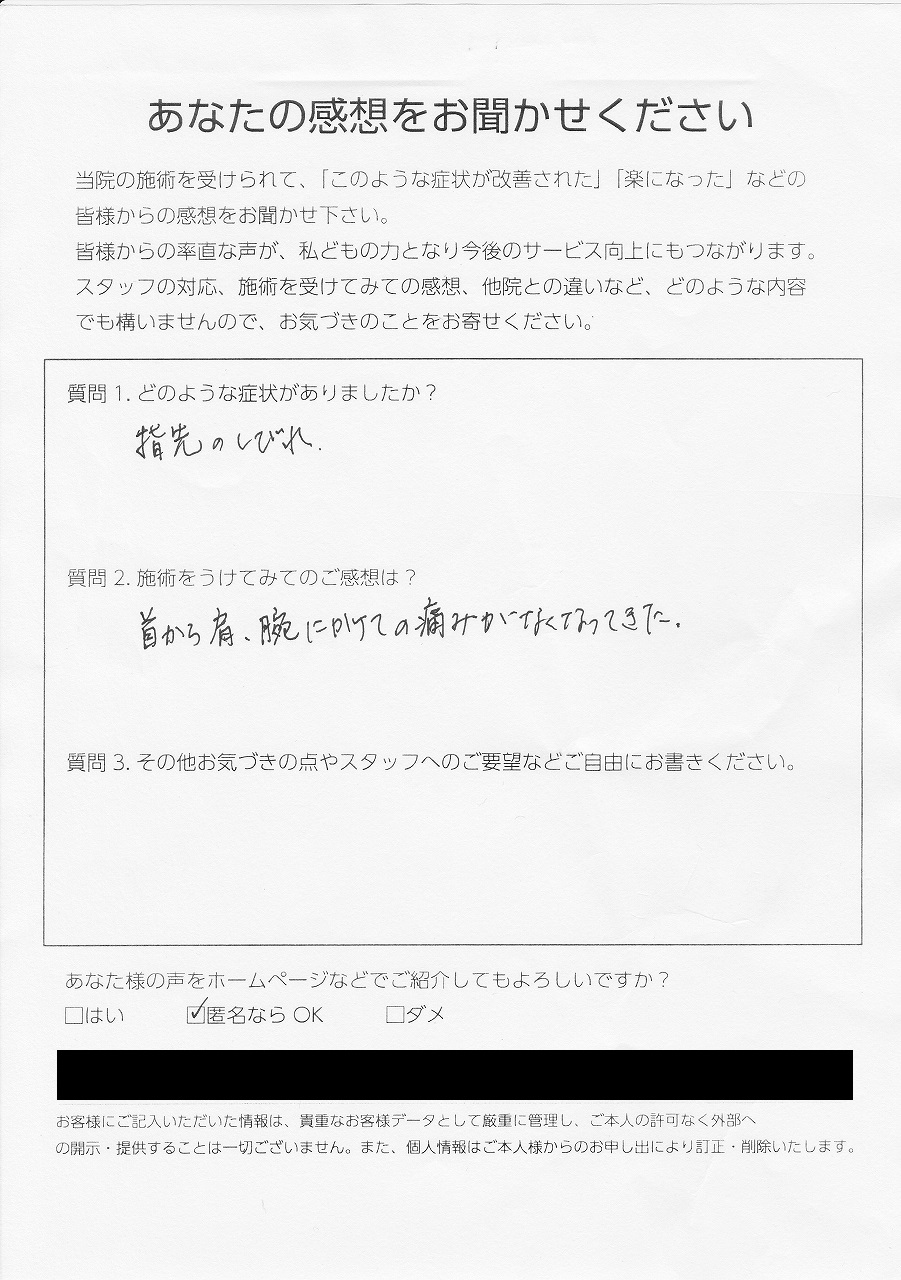 あなたの感想をお聞かせください
当院の施術を受けられて、「このような症状が改善された」「楽になった」などの
皆様からの感想をお聞かせ下さい。
皆様からの率直な声が、私どもの力となり今後のサービス向上にもつながります。
スタッフの対応、施術を受けてみての感想、他院との違いなど、どのような内容
でも構いませんので、お気づきのことをお寄せください。
質問 1. どのような症状がありましたか？
指先のしびれ.
質問 2. 施術をうけてみてのご感想は？
首から肩、腕にかけての痛みがなくなってきた。
質問 3. その他お気づきの点やスタッフへのご要望などご自由にお書きください。
あなた様の声をホームページなどでご紹介してもよろしいですか？
□はい ☑匿名なら OK □ダメ
お客様にご記入いただいた情報は、貴重なお客様データとして厳重に管理し、ご本人の許可なく外部へ
の開示・提供することは一切ございません。また、個人情報はご本人様からのお申し出により訂正・削除いたします。